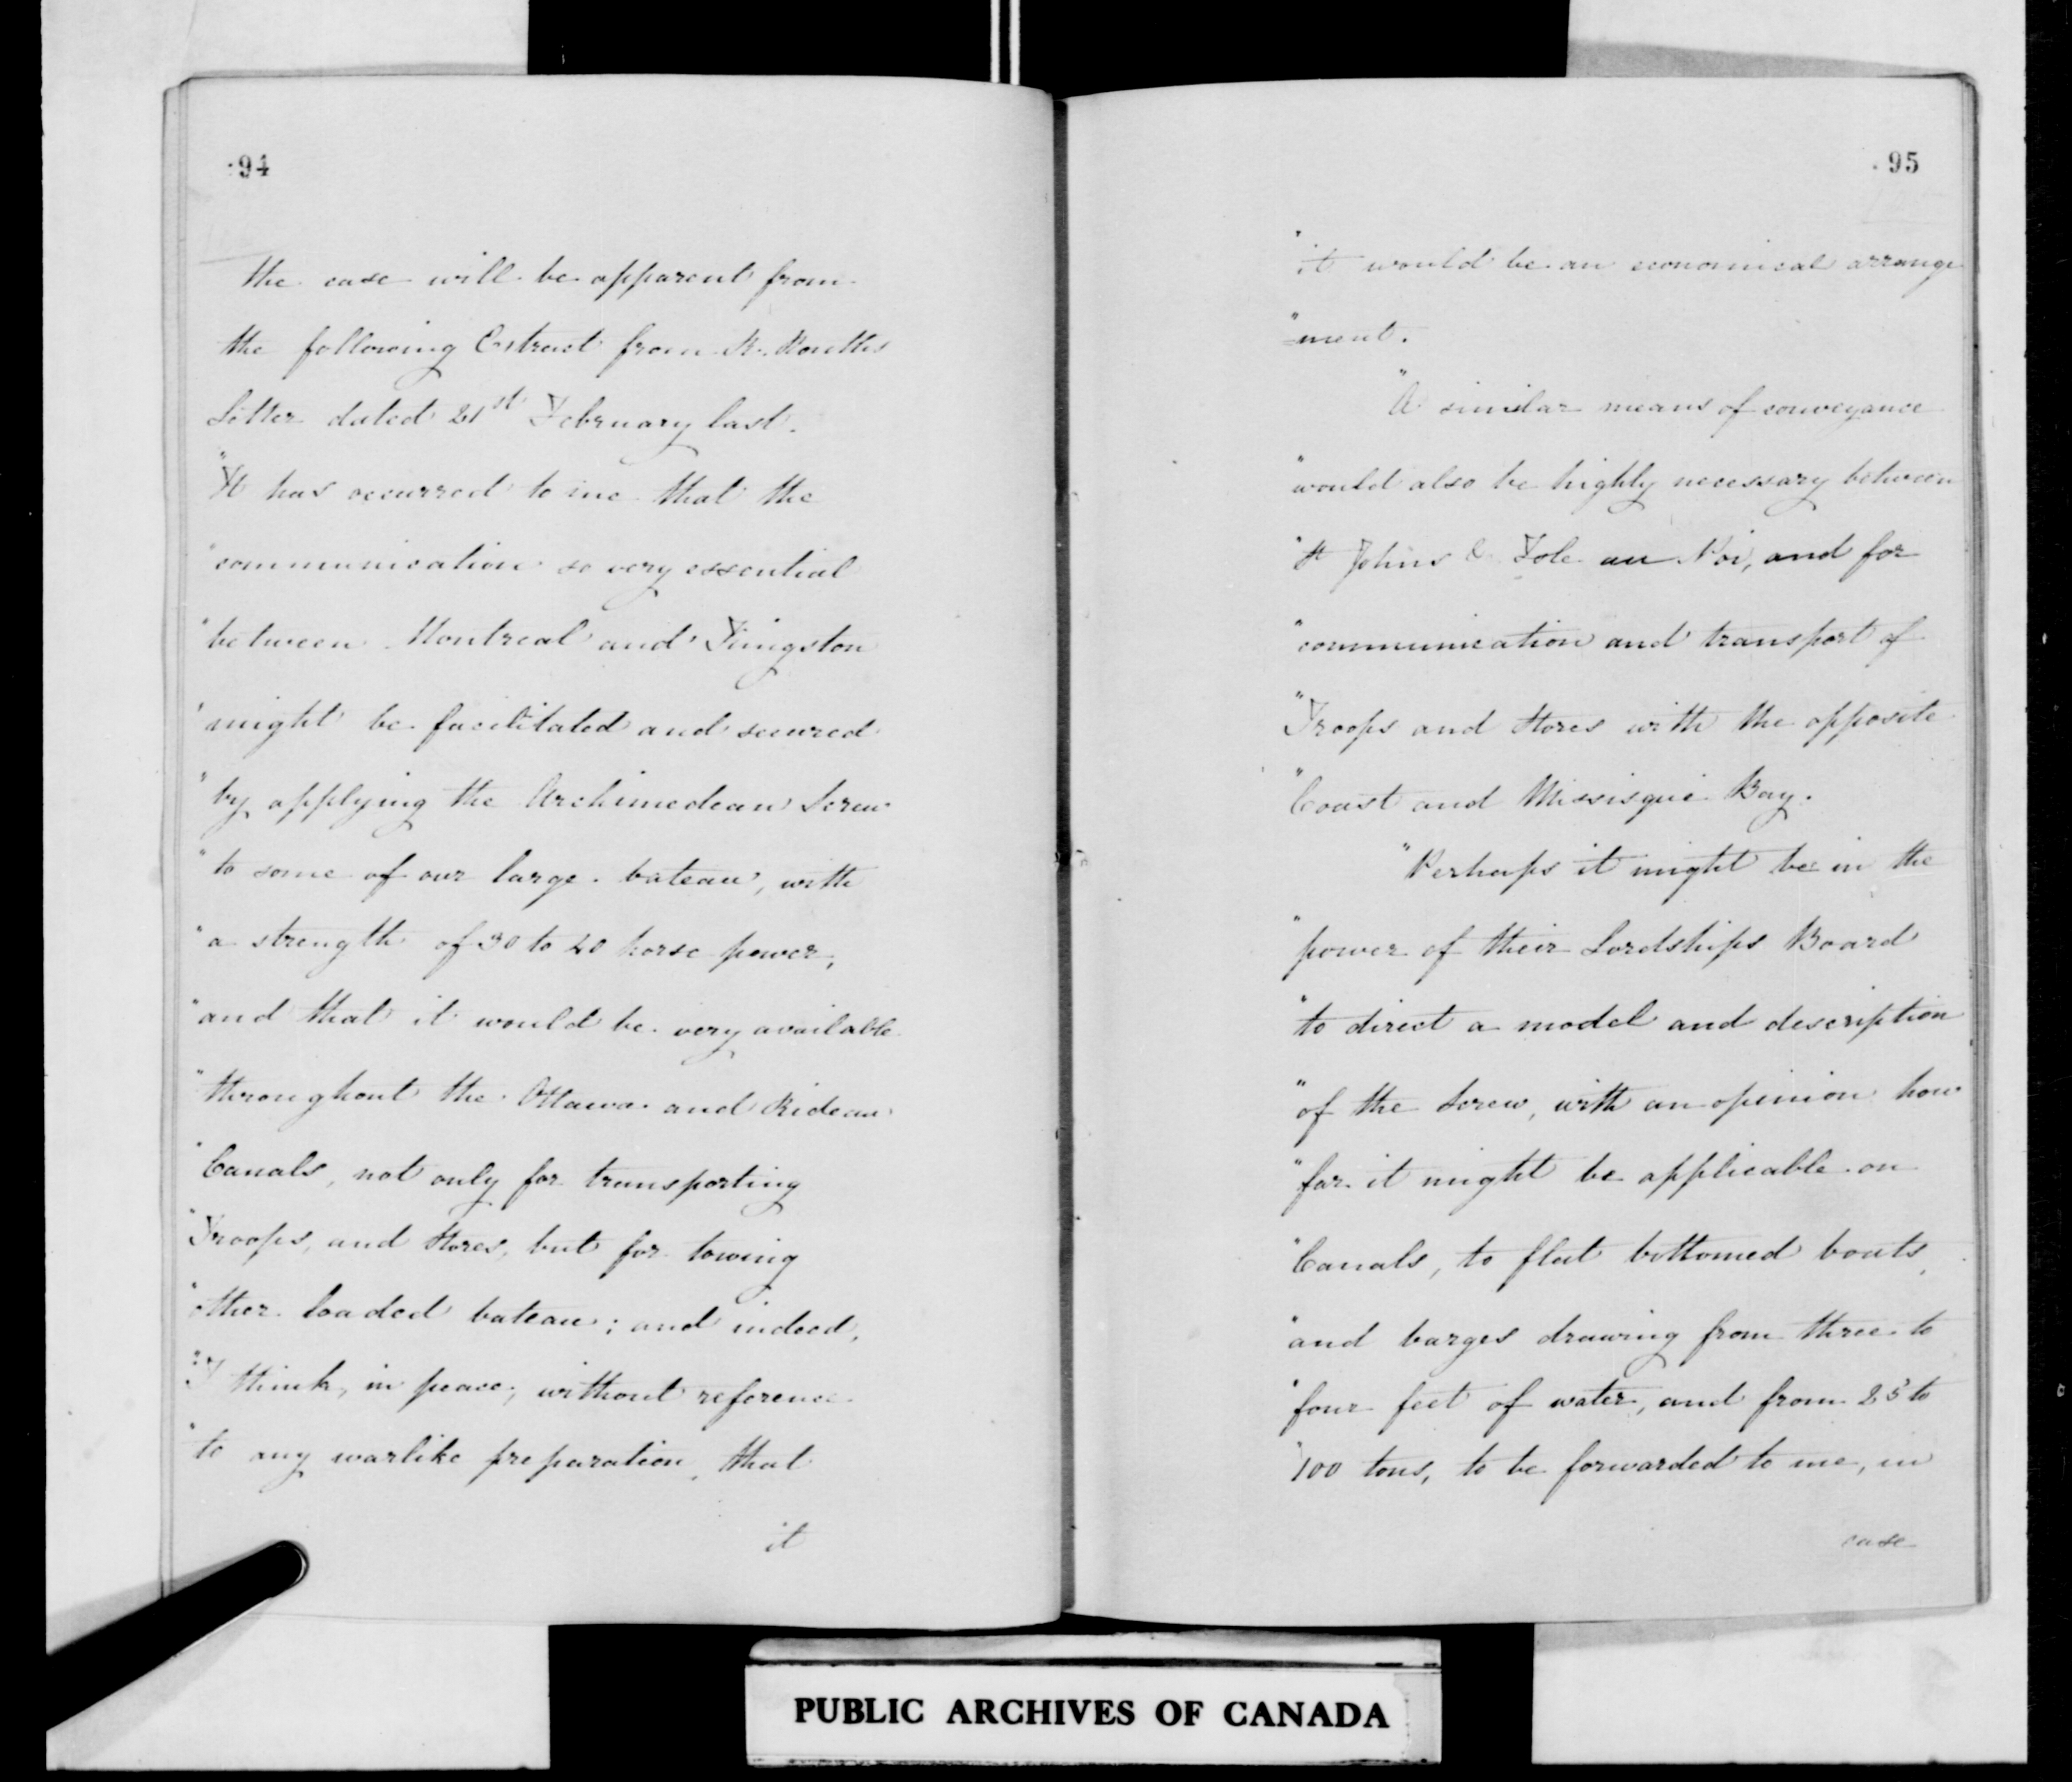 94
the case will be apparent from
the following Extract from R. Rouths
Letter dated 21st February last.
"It has occurred to me that the
"communication so very essential
"between Montreal and Kingston
"might be facilitated and secured
"by applying the Archimedean Screw
"to some of our large bateau, with
"a strength of 30 to 20 horse power,
"and that it would be very available
"throughout the Ottawa and Rideau
"Canals, not only for transporting
"Troops, and Stores, but for towing
"other loaded bateau; and indeed,
"I think, in peace, without reference
"to any warlike preparation, that
it
95
"it would be an economical arrange
"ment.
"A similar means of conveyance
"would also be highly necessary between
"St Johns & Isle au Noi, and for
"communication and transport of
"Troops and Stores with the opposite
"Coast and Missisqui Bay.
"Perhaps it might be in the
"power of their Lordships Board
"to direct a model and description
"of the Screw, with an opinion how
"far it might be applicable on
"Canals, to flat bottomed boats,
"and barges drawing from three to
"four feet of water, and from 25 to
"100 tons, to be forwarded to me, in
case
PUBLIC ARCHIVES OF CANADA